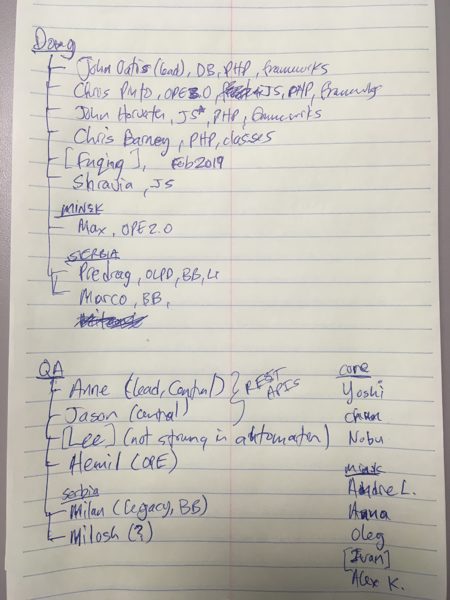 Doug
John Oatis (lead), DB, PHP, frameworks
Chris Pinto, OPE2.0, JS, PHP, frameworks
John Horvath, JS*, PHP, frameworks
Chris Barney, PHP, classes
[Fuqing], Feb 2019
Shravia, JS
MINSK
Max, OPE 2.0
SERBIA
Predrag, OLPD, BB,
Marco, BB,
QA
Anne (lead, Central) } REST APIS
Jason (central)
[Lee] (not strong in automation)
Hemil (OPE)
Serbia
Milan (Legacy, BB)
Milosh (?)
core
Yoshi
Nobu
Minsk
Andre L.
Anna
Oleg
[Ivan]
Alex K.